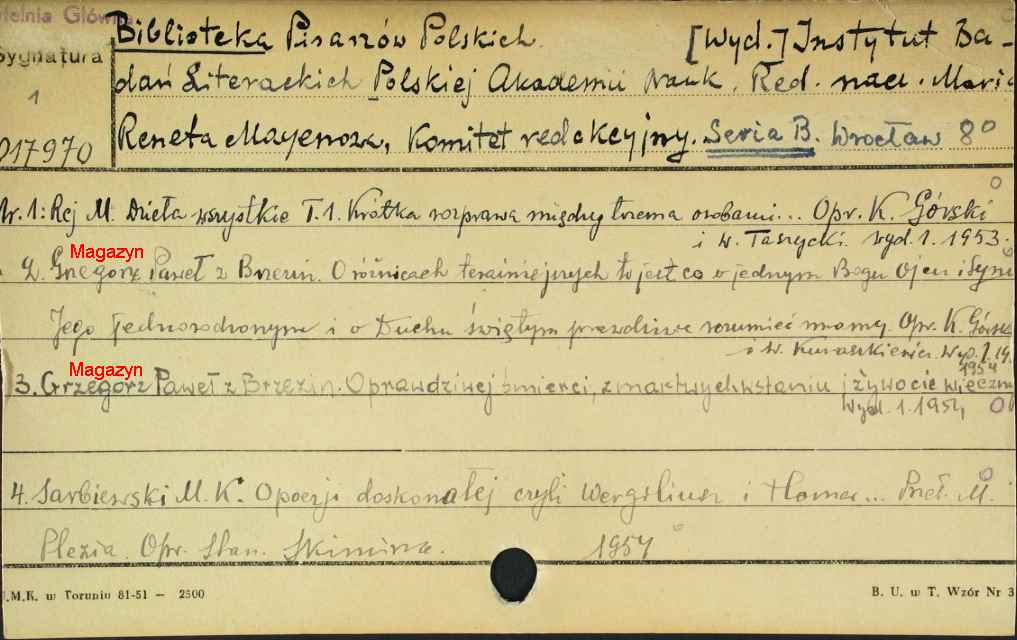 Czytelnia Główna
Sygnatura
1
017970
Biblioteka Pisarzów Polskich. [Wyd.] Instytut Ba-
dań Literackich Polskiej Akademii Nauk. Red. nacz. Maria
Reneta Mayenowa, Komitet redakcyjny. Seria B. Wrocław 8°
Nr. 1: Rej M. Dzieła wszystkie T. 1. Krótka rozprawa między trzema osobami... Opr. K. Górski
i W. Taszycki. Wyd. 1. 1953.
Magazyn
2. Grzegorz Paweł z Brzezin. O różnicach teraźniejszych to jest co o jednym Bogu Ojcu i Synu
Jego jednorodzonym i o Duchu świętym prawdziwie rozumieć mamy. Opr. K. Górski
i W. Kuraszkiewicz. Wyd. 1. 19
1954
Magazyn
3. Grzegorz Paweł z Brzezin. O prawdziwej śmierci, zmartwychwstaniu i żywocie wieczny
Wyd. 1. 1954,
4. Sarbiewski M. K. O poezji doskonałej czyli Wergiliusz i Homer... Przeł. M.
Plezia. Opr. Stan. Skimina. 1954
U.M.K. w Toruniu 81-51 — 2500
B. U. w T. Wzór Nr 3